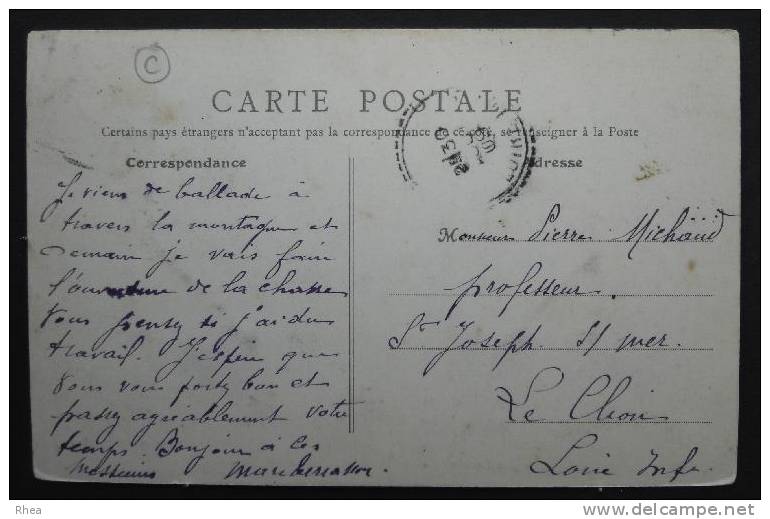 C
CARTE POSTALE
Certains pays étrangers n'acceptant pas la correspondance de ce côté, se renseigner à la Poste
Correspondance
Je viens de ballade à
travers la montagne et
demain je vais faire
l'ouverture de la chasse
Vous pensez si j'ai du
travail. J'espère que
vous vous portez bien et
passez agréablement votre
temps. Bonjour à ces
Messieurs
Adresse
Monsieur Pierre Michaud
professeur
St Joseph s/ mer
Le Clion
Loire Infre
Rhea
delcampe.net